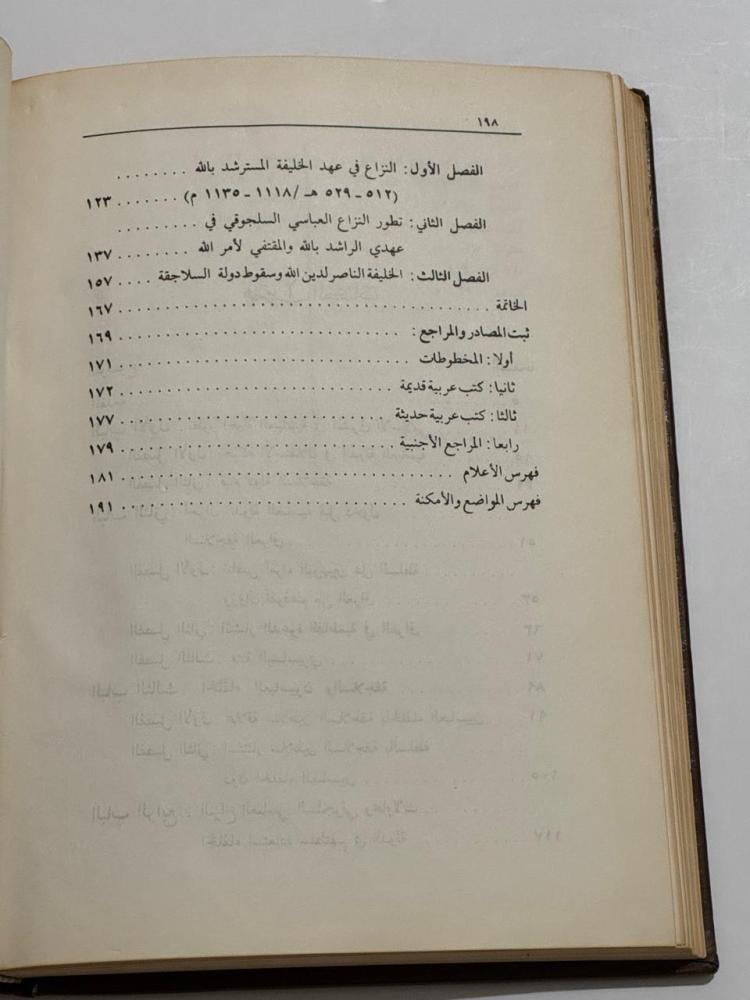 ١٩٨
الفصل الأول: النزاع في عهد الخليفة المسترشد بالله ........
(٥١٢ - ٥٢٩ هـ / ١١١٨ - ١١٣٥ م) ....... ١٢٣
الفصل الثاني: تطور النزاع العباسي السلجوقي في .........
عهدي الراشد بالله والمقتفي لأمر الله ........ ١٣٧
الفصل الثالث: الخليفة الناصر لدين الله وسقوط دولة السلاجقة ١٥٧
الخاتمة ........................................ ١٦٧
ثبت المصادر والمراجع: ............................ ١٦٩
أولا: المخطوطات ............................ ١٧١
ثانيا: كتب عربية قديمة ........................... ١٧٢
ثالثا: كتب عربية حديثة ........................... ١٧٧
رابعا: المراجع الأجنبية ........................... ١٧٩
فهرس الأعلام .................................. ١٨١
فهرس المواضع والأمكنة ............................ ١٩١